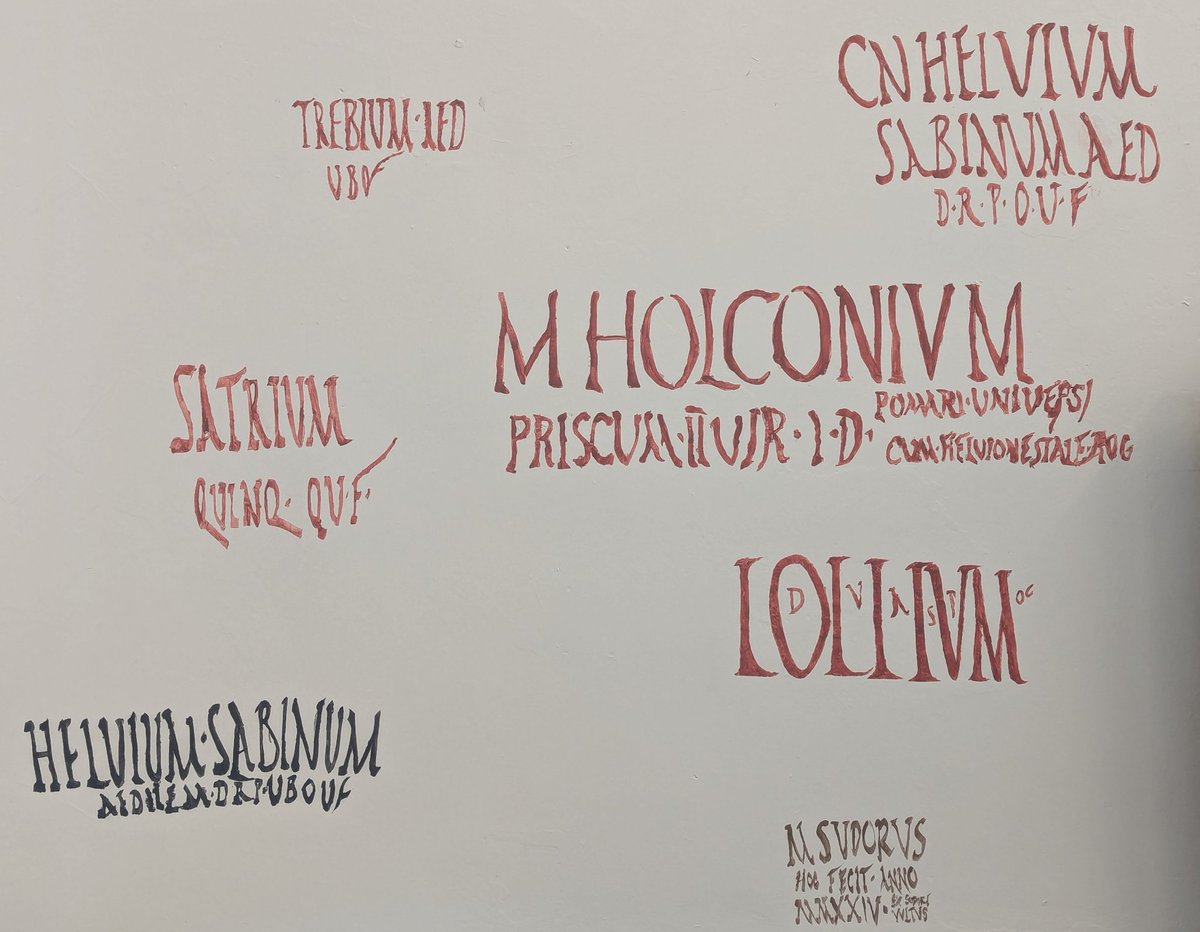 TREBIUM·AED
VBOF
CN HELVIVM
SABINVM AED
D·R·P·O·V·F
M HOLCONIVM
PRISCUM·IIVIR·I·D·
POMARI·UNIVERSI
CUM·HELVIO VESTALE·ROG
SATRIUM
QUINQ· QV·F·
LOLLIUM
D V A S P OC
HELVIUM·SABINUM
AEDILEM·D·R·P·VBOVF
M SUDORUS
HOC FECIT· ANNO
MMXXIV·
VVLTVS